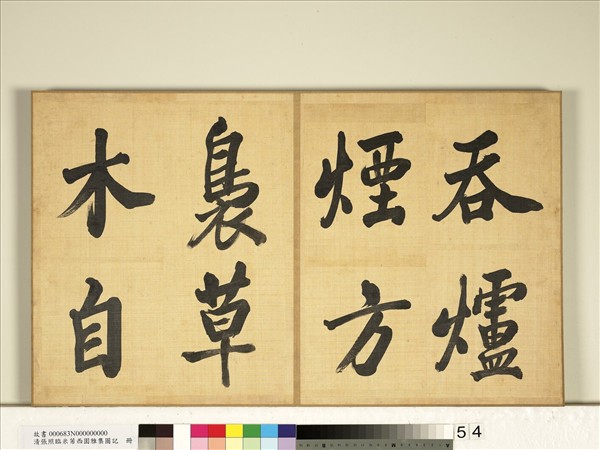 吞爐
煙方
裊草
木自
故書 000683N000000000
清張照臨米芾西園雅集圖記 冊
54